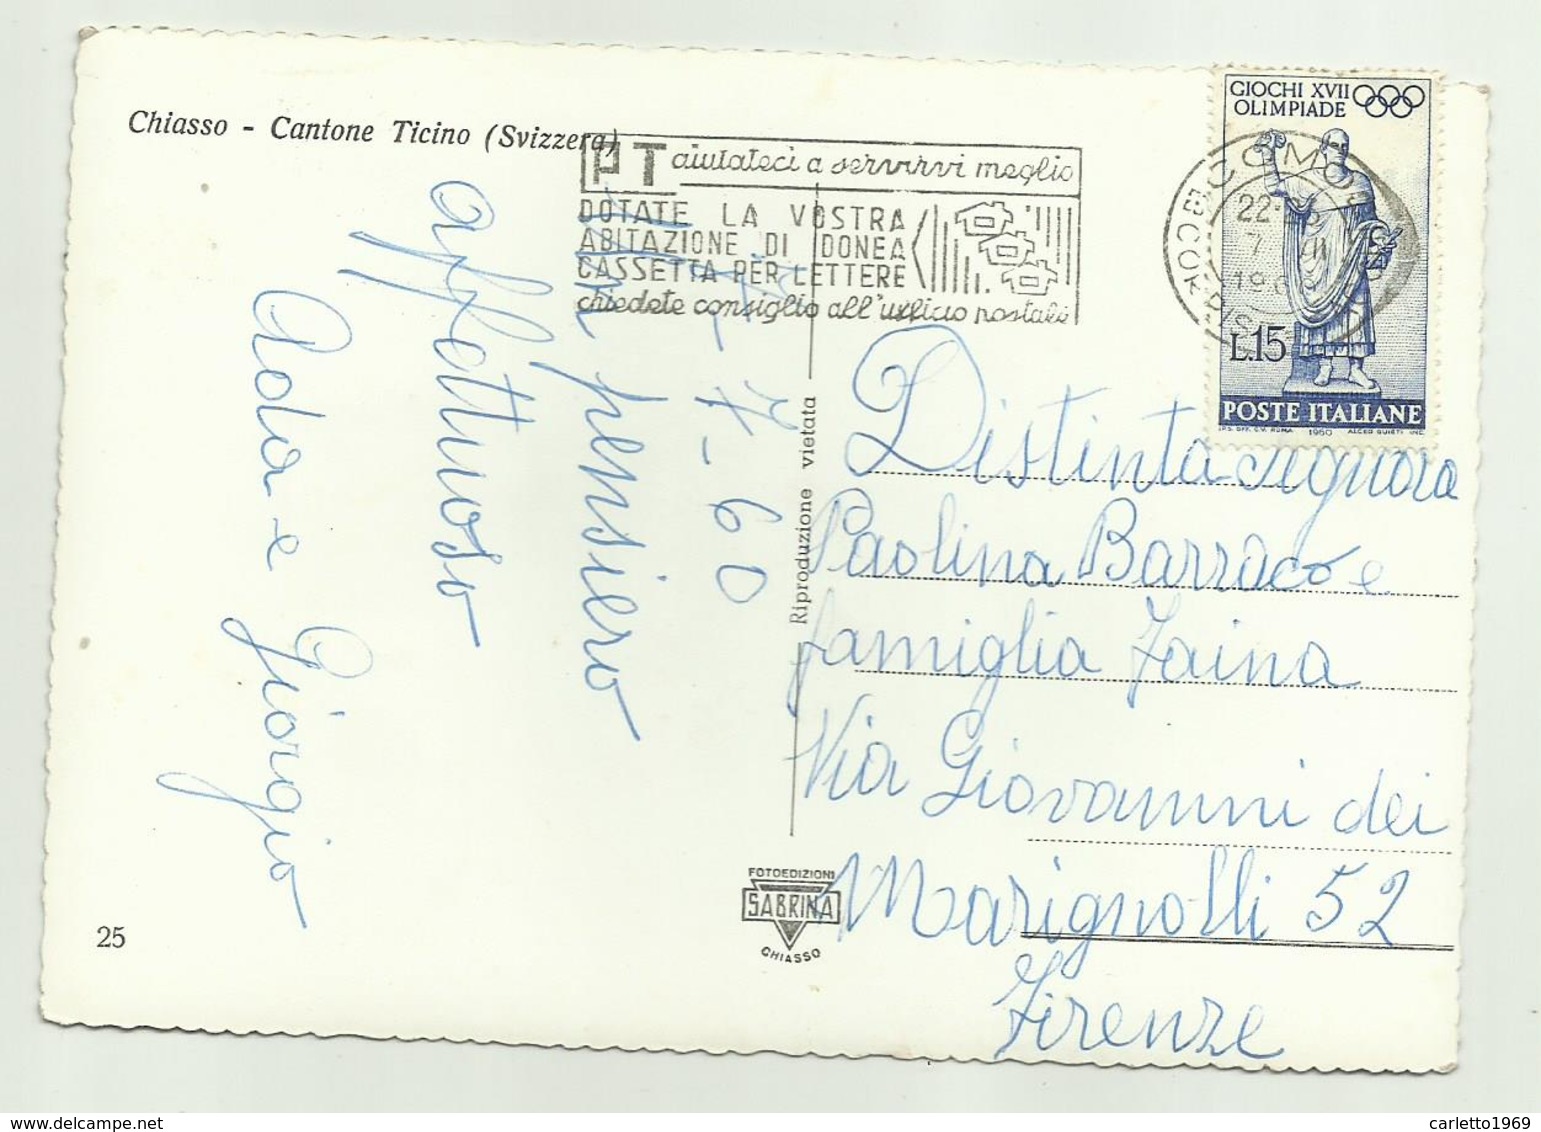 Chiasso - Cantone Ticino (Svizzera)
PT aiutateci a servirvi meglio
DOTATE LA VOSTRA
ABITAZIONE DI DONEA
CASSETTA PER LETTERE
chiedete consiglio all'ufficio postale
GIOCHI XVII
OLIMPIADE
COMO
22
7
L.15
POSTE ITALIANE
I.P.S. OFF. C.V. ROMA 1960 ALCEO QUIETI INC.
7-60
un pensiero
affettuoso
Ada e Giorgio
Riproduzione vietata
Distinta signora
Paolina Barraco e
famiglia Zaina
Via Giovanni dei
Marignolli 52
Firenze
FOTOEDIZIONI
SABRINA
CHIASSO
25
delcampe.net
carletto1969